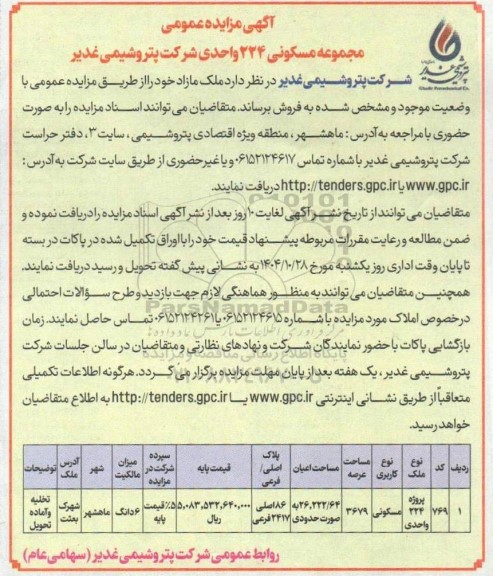 آگهی مزایده عمومی
مجموعه مسکونی ۲۲۴ واحدی شرکت پتروشیمی غدیر
پتروشیمی غدیر
Ghadir Petrochemical Co.
شرکت پتروشیمی غدیر در نظر دارد ملک مازاد خود را از طریق مزایده عمومی با
وضعیت موجود و مشخص شده به فروش برساند. متقاضیان می توانند اسناد مزایده را به صورت
حضوری با مراجعه به آدرس: ماهشهر، منطقه ویژه اقتصادی پتروشیمی، سایت ۳، دفتر حراست
شرکت پتروشیمی غدیر با شماره تماس ۰۶۱۵۲۱۲۴۶۱۷ و یا غیر حضوری از طریق سایت شرکت به آدرس:
www.gpc.ir یا http://tenders.gpc.ir دریافت نمایند.
متقاضیان می توانند از تاریخ نشر آگهی لغایت ۱۰ روز بعد از نشر آگهی اسناد مزایده را دریافت نموده و
ضمن مطالعه و رعایت مقررات مربوطه پیشنهاد قیمت خود را با اوراق تکمیل شده در پاکات در بسته
تا پایان وقت اداری روز یکشنبه مورخ ۱۴۰۴/۱۰/۲۸ به نشانی پیش گفته تحویل و رسید دریافت نمایند.
همچنین متقاضیان می توانند به منظور هماهنگی لازم جهت بازدید و طرح سؤالات احتمالی
درخصوص املاک مورد مزایده با شماره ۰۶۱۵۲۱۲۴۶۱۵ یا ۰۶۱۵۲۱۲۴۲۶۱ تماس حاصل نمایند. زمان
بازگشایی پاکات با حضور نمایندگان شرکت و نهادهای نظارتی و متقاضیان در سالن جلسات شرکت
پتروشیمی غدیر، یک هفته بعد از پایان مهلت مزایده برگزار می گردد. هرگونه اطلاعات تکمیلی
متعاقباً از طریق نشانی اینترنتی www.gpc.ir یا http://tenders.gpc.ir به اطلاع متقاضیان
خواهد رسید.
ردیف کد نوع ملک نوع کاربری مساحت عرصه مساحت اعیان پلاک اصلی/فرعی قیمت پایه سپرده شرکت در مزایده میزان مالکیت شهر آدرس ملک توضیحات
۱ ۷۶۹ پروژه ۲۲۴ واحدی مسکونی ۳۶۷۹ ۲۶,۲۲۲/۶۴ به صورت حدودی ۸۶ اصلی ۲۴۱۷ فرعی ۵,۰۸۳,۵۳۲,۶۴۰,۰۰۰ ریال ۵٪ قیمت پایه ۶ دانگ ماهشهر شهرک بعثت تخلیه و آماده تحویل
روابط عمومی شرکت پتروشیمی غدیر (سهامی عام)